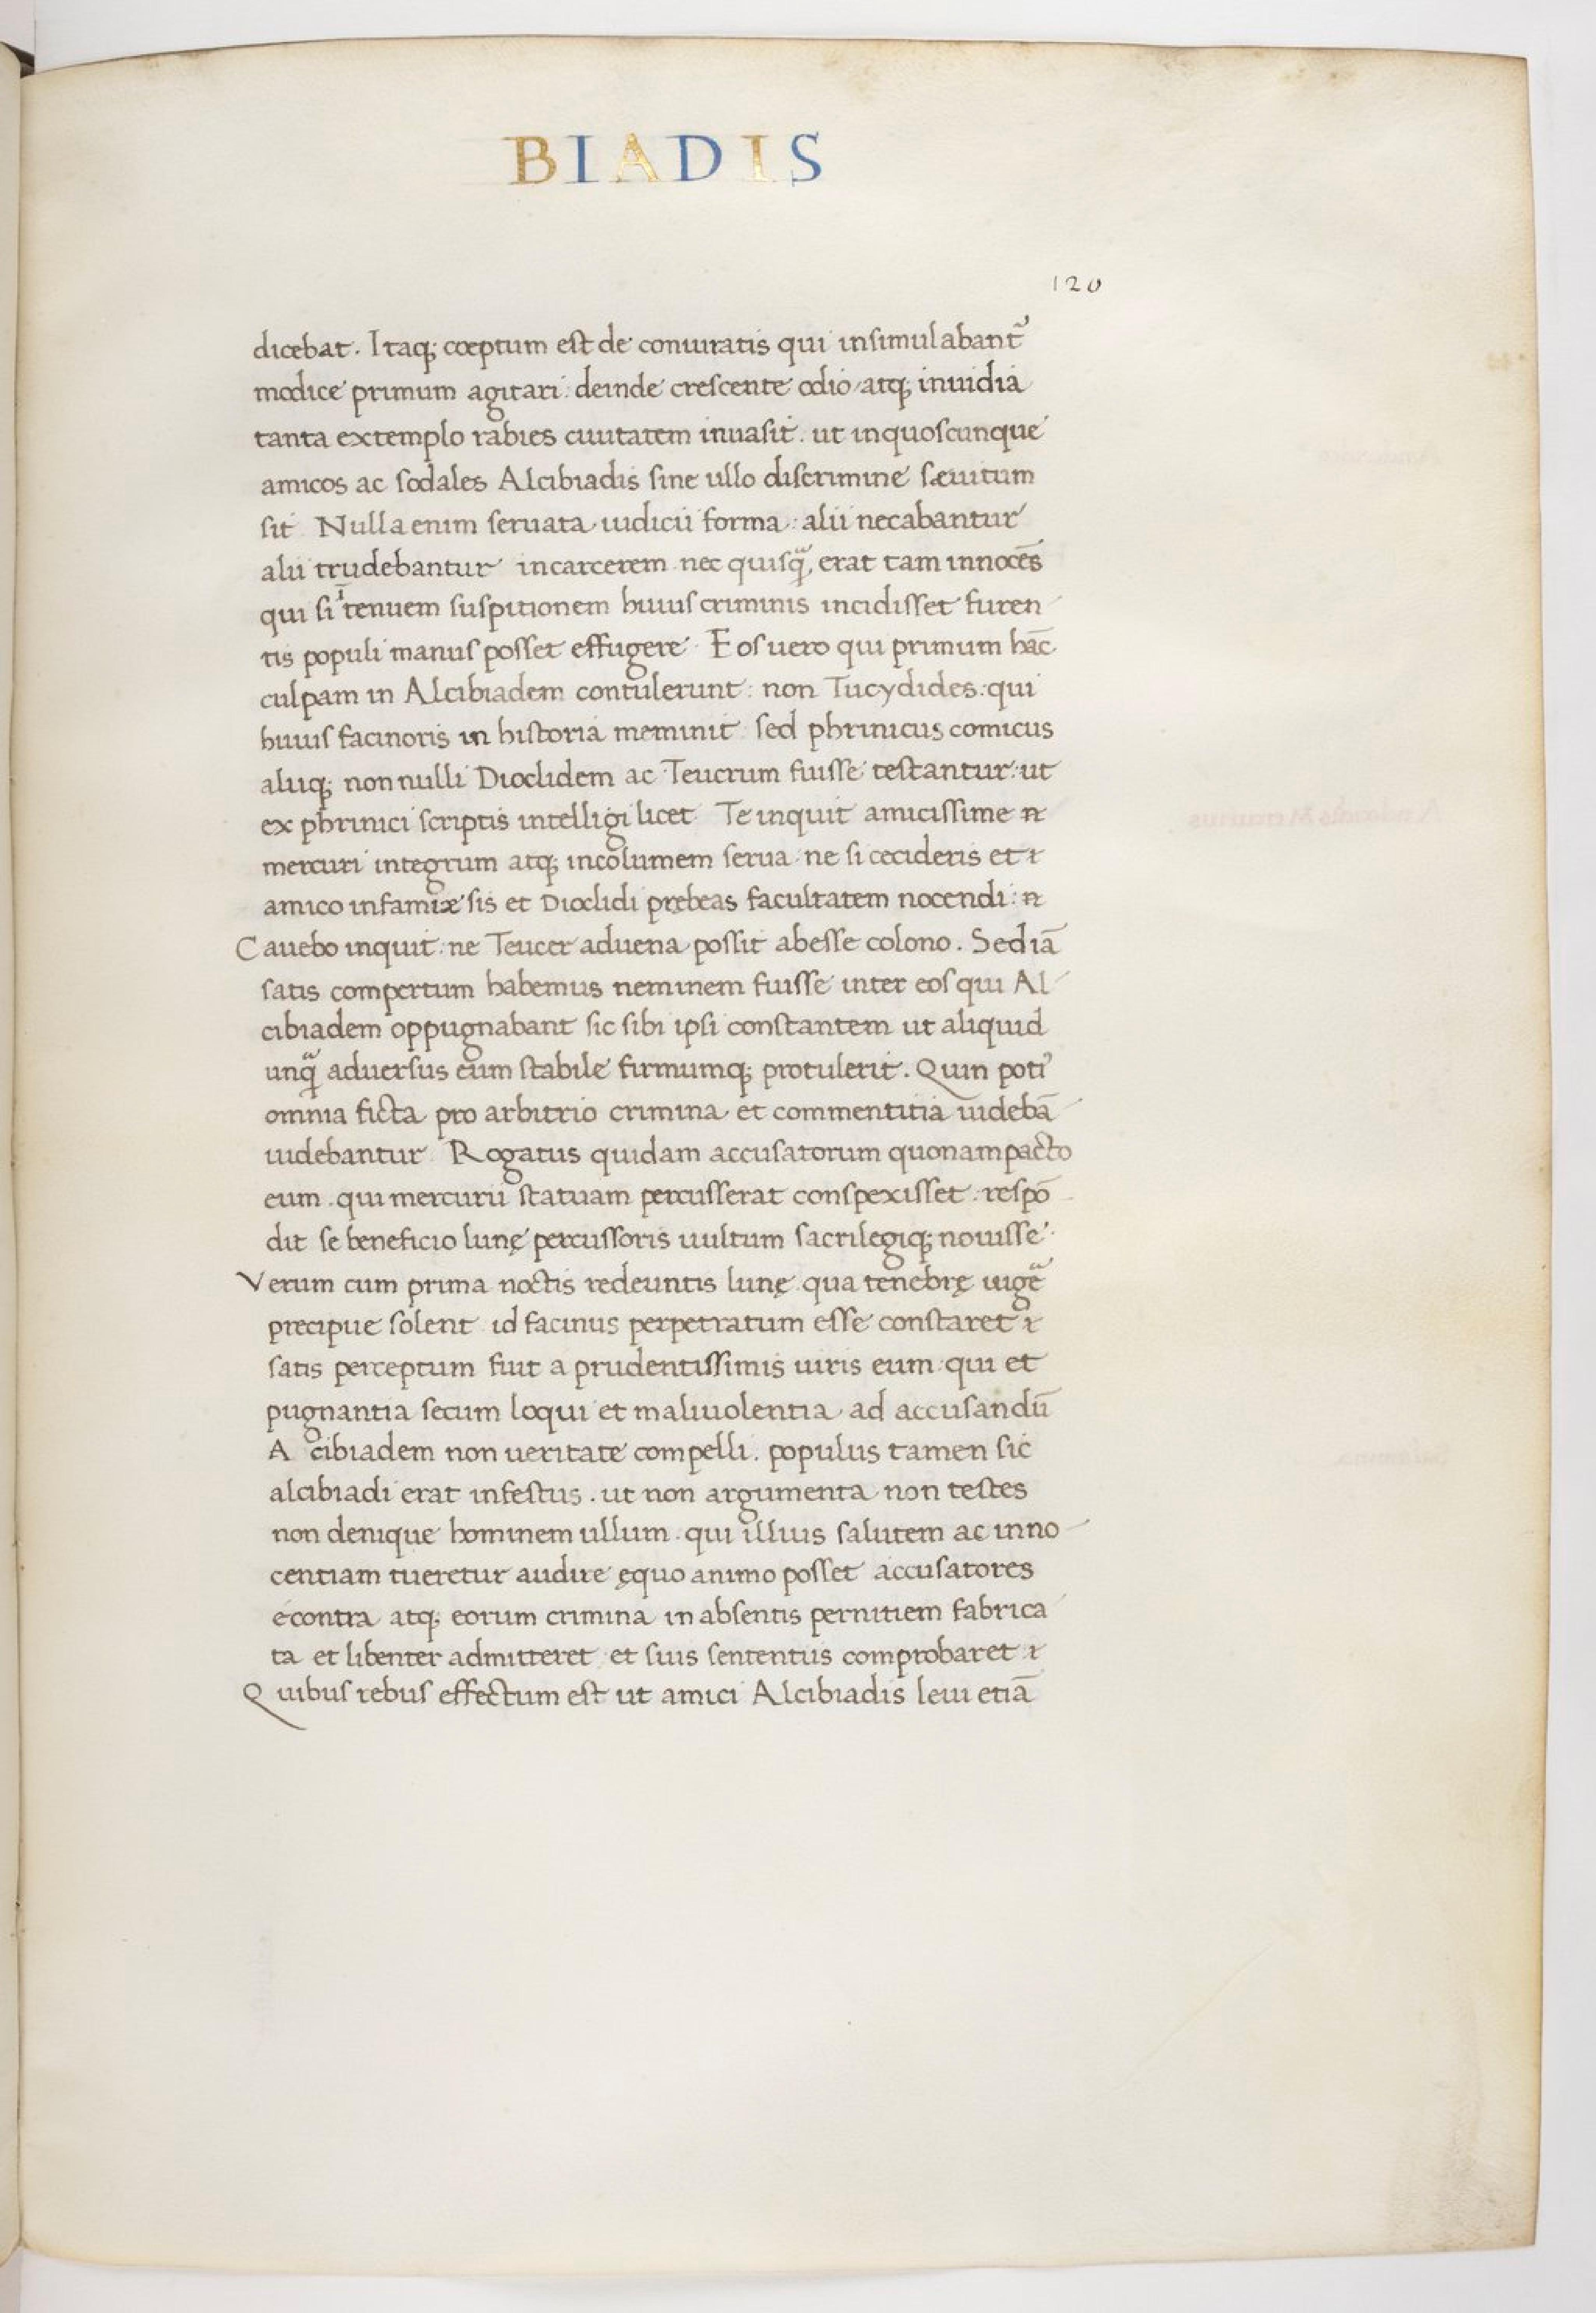 BIADIS
120
dicebat. Itaq; cœptum est de coniuratis qui insimulabant᷑
modice primum agitari: deinde crescente odio atq; inuidia
tanta extemplo rabies ciuitatem inuasit. ut in quoscunque
amicos ac sodales Alcibiadis sine ullo discrimine sæuitum
sit Nulla enim seruata iudicii forma: alii necabantur
alii trudebantur in carcerem nec quisqᷓ erat tam innocēs
qui si ī tenuem suspitionem huius criminis incidisset furen
tis populi manus posset effugere Eos uero qui primum hāc
culpam in Alcibiadem contulerunt: non Tucydides: qui
huius facinoris in historia meminit sed phrinicus comicus
aliiq; non nulli Dioclidem ac Teucrum fuisse testantur: ut
ex phrinici scriptis intelligi licet Te inquit amicissime
mercuri integrum atq; incolumem serua ne si cecideris et
amico infamiæ sis et Dioclidi prębeas facultatem nocendi:
Cauebo inquit: ne Teucer aduena possit abesse colono. Sed iā
satis compertum habemus neminem fuisse inter eos qui Al
cibiadem oppugnabant sic sibi ipsi constantem ut aliquid
unqᷓ aduersus eum stabile firmumq; protulerit. Quin poti᾽
omnia ficta pro arbitrio crimina et commentitia uidebā
uidebantur Rogatus quidam accusatorum quonam pacto
eum. qui mercurii statuam percusserat conspexisset. respō
dit se beneficio lunę percussoris uultum sacrilegiq; nouisse
Verum cum prima noctis redeuntis lunę qua tenebrę uigē
precipue solent id facinus perpetratum esse constaret
satis perceptum fuit a prudentissimis uiris eum: qui et
pugnantia secum loqui et maliuolentia ad accusandū
A cibiadem non ueritate compelli. populus tamen sic
alcibiadi erat infestus. ut non argumenta non testes
non denique hominem ullum. qui illius salutem ac inno
centiam tueretur audire ęquo animo posset accusatores
econtra atq; eorum crimina in absentis pernitiem fabrica
ta et libenter admitteret et suis sententiis comprobaret
Quibus rebus effectum est ut amici Alcibiadis leui etiā